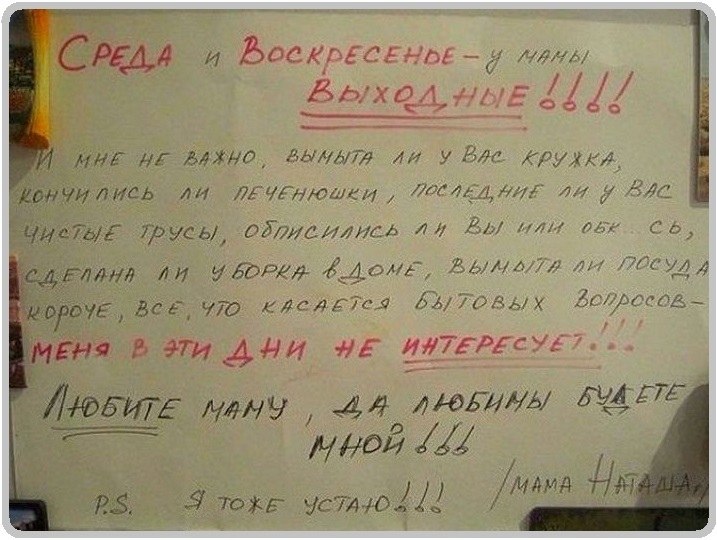 Среда и Воскресенье – у мамы
Выходные!!!!
И мне не важно, вымыта ли у Вас кружка,
кончились ли печенюшки, последние ли у Вас
чистые трусы, обписились ли Вы или обк...сь,
сделана ли уборка в доме, вымыта ли посуда
короче, все, что касается бытовых вопросов –
меня в эти дни не интересует!!!
Любите маму, да любимы будете
мной!!!
/мама Наташа/
P.S. Я тоже устаю!!!